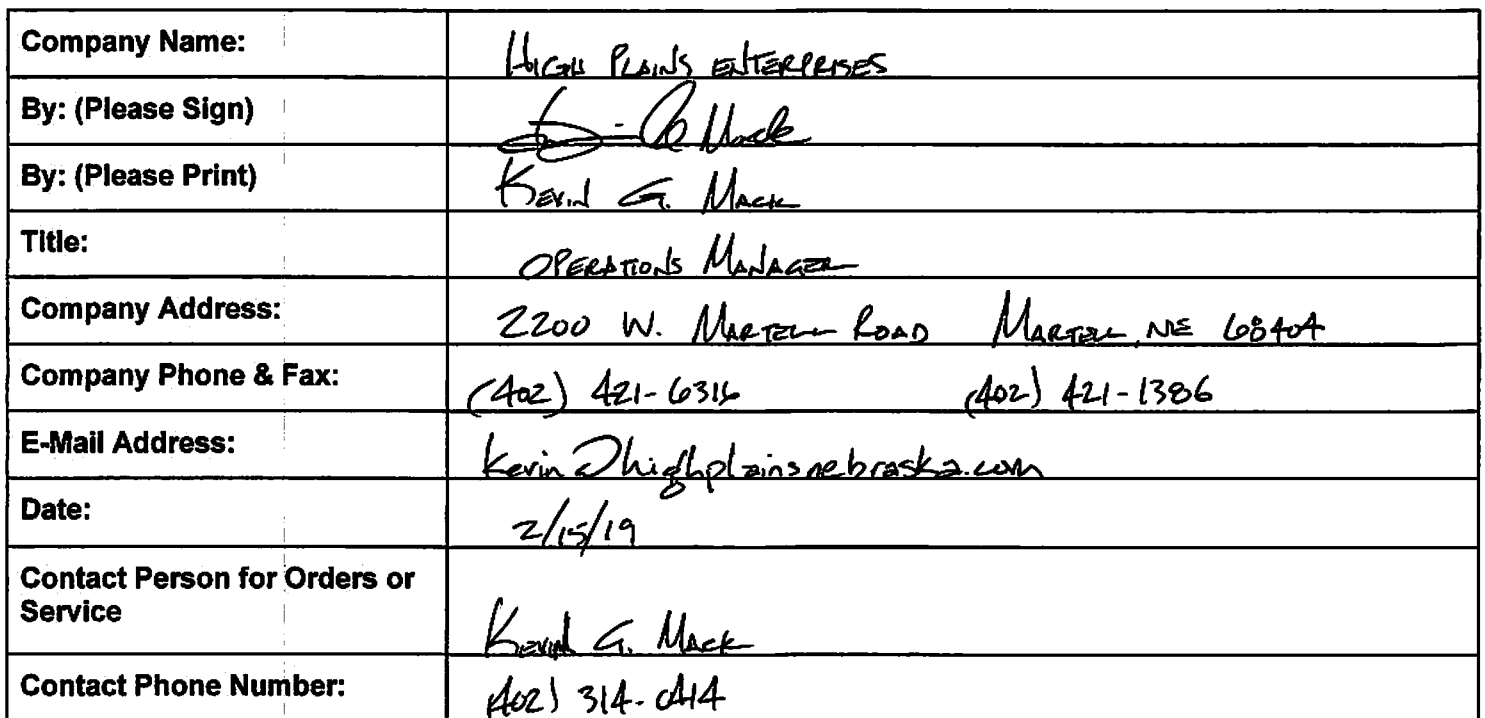 Company Name: HIGH PLAINS ENTERPRISES
By: (Please Sign) Mack
By: (Please Print) KEVIN G. MACK
Title: OPERATIONS MANAGER
Company Address: 2200 W. MARTELL ROAD MARTELL, NE 68404
Company Phone & Fax: (402) 421-6316 (402) 421-1386
E-Mail Address: kevin@highplainsnebraska.com
Date: 2/15/19
Contact Person for Orders or
Service KEVIN G. MACK
Contact Phone Number: (402) 314-0414